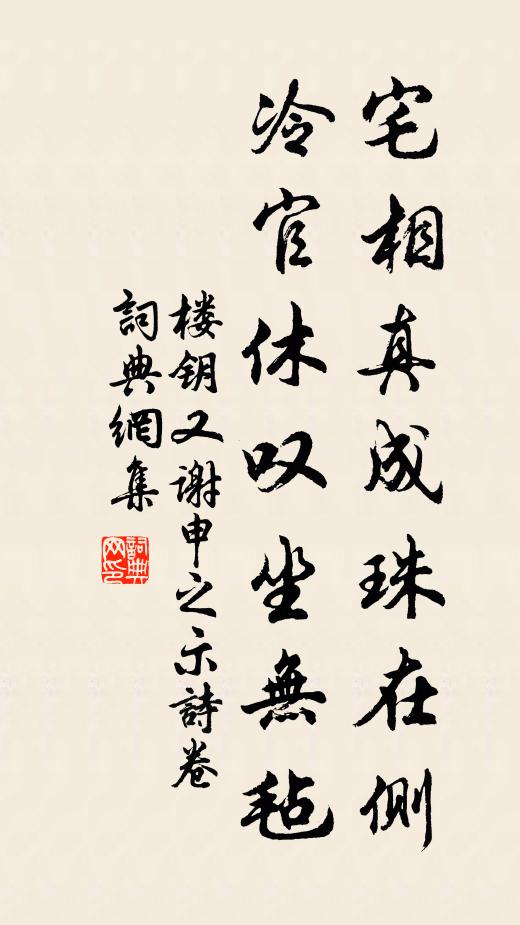 宅相真成珠在侧
冷官休叹坐無毡
楼钥又谢申之示詩卷
詞典網集
詞典網印